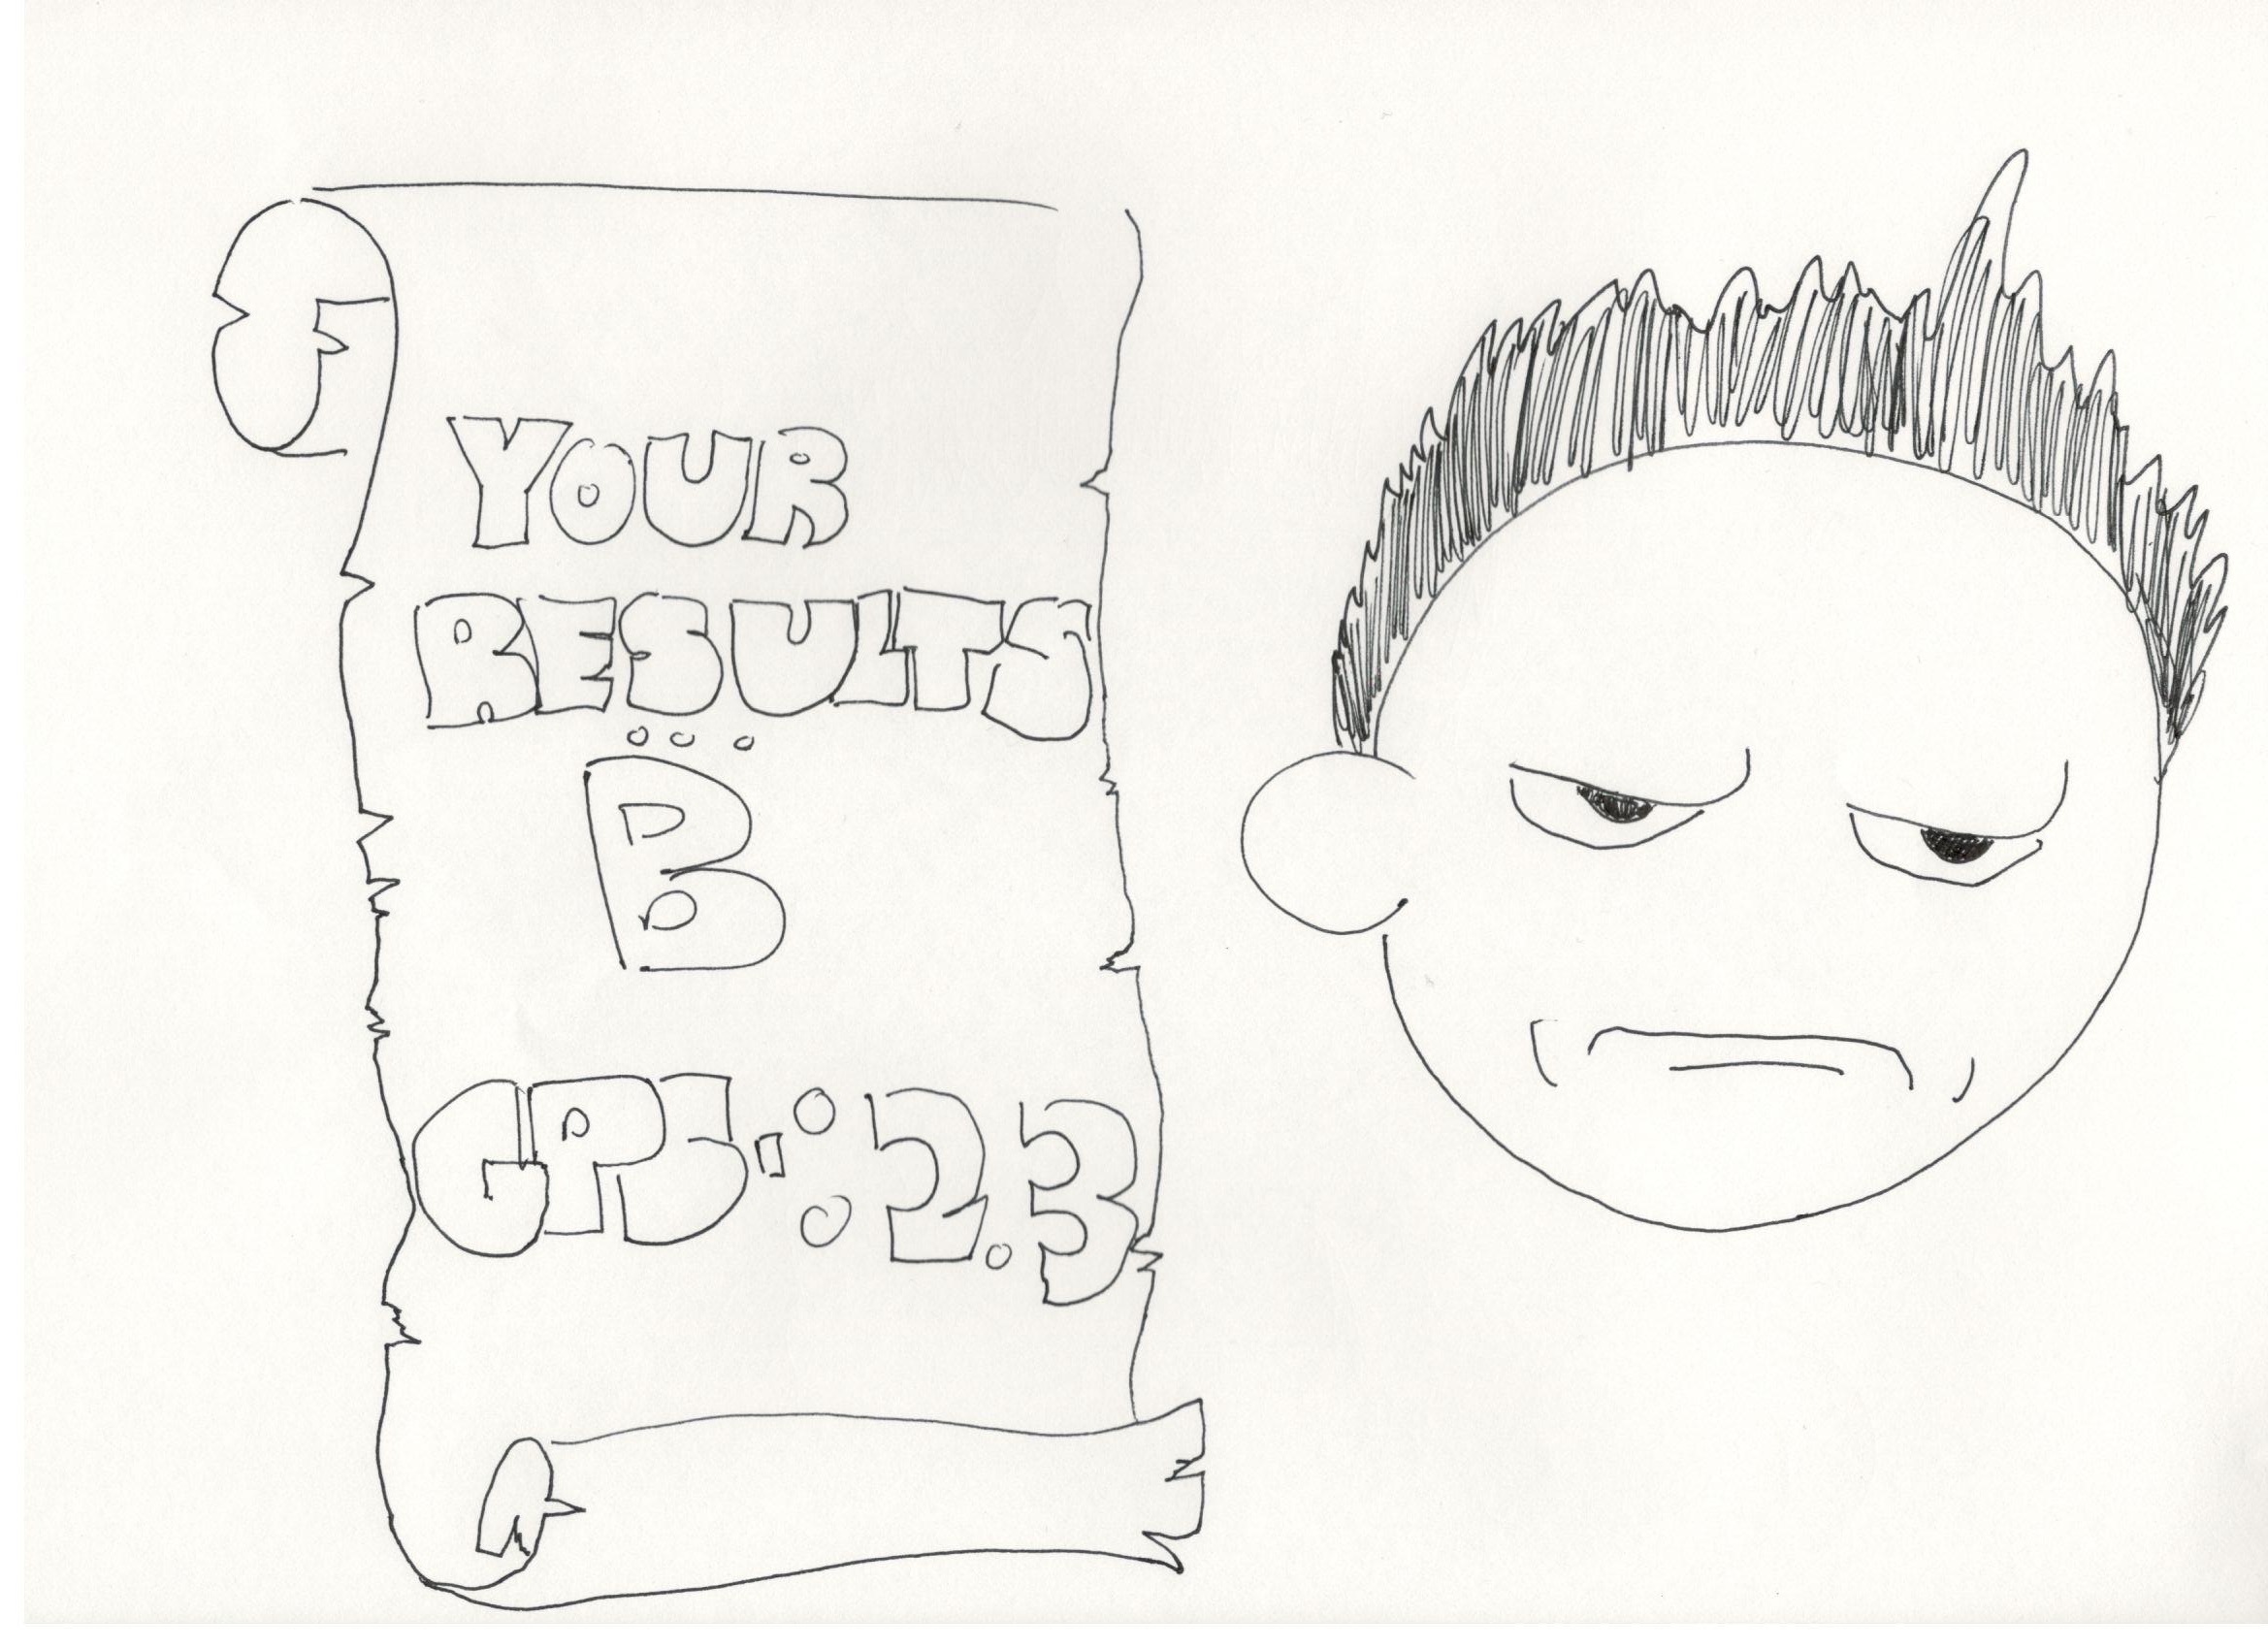 YOUR
RESULTS
...
B
GPS.: 2.3